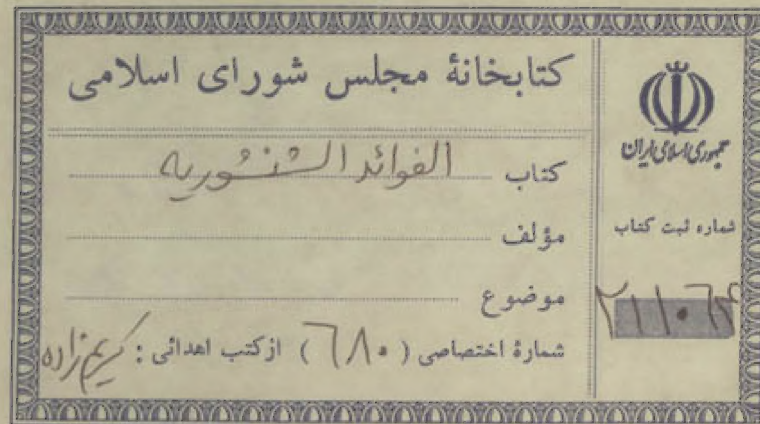 کتابخانهٔ مجلس شورای اسلامی
کتاب الفوائد الشنشوریه
مؤلف
موضوع
شمارهٔ اختصاصی ( ۶۸۰ ) از کتب اهدائی : کریم‌زاده
جمهوری اسلامی ایران
شماره ثبت کتاب
۲۱۱۰۶۴